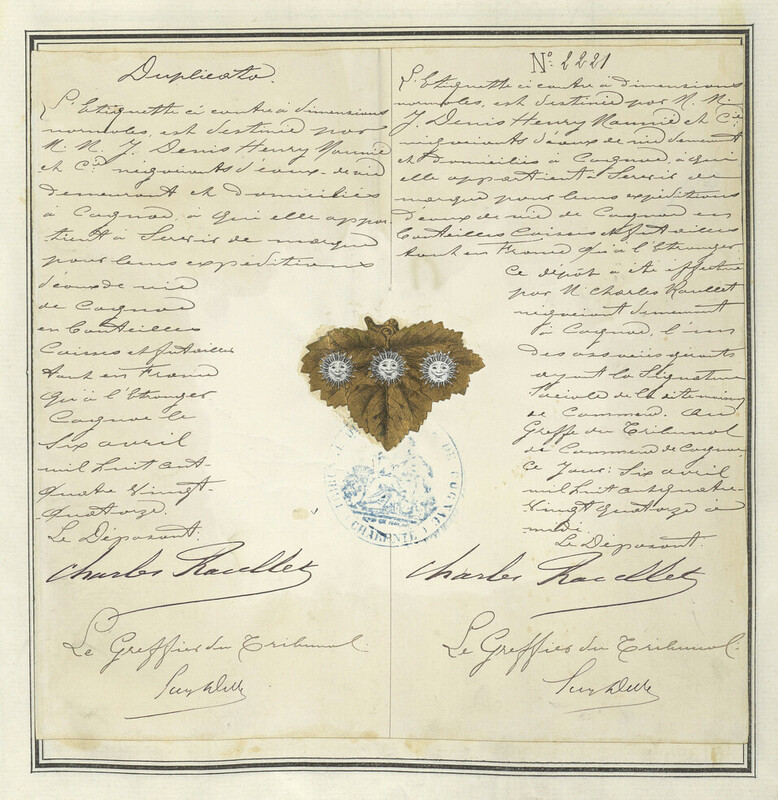 Duplicata.
L'Etiquette ci contre à dimensions
normales, est destinée par
M. M. J. Denis Henry Mounié
et Cie négociants d'eaux-de-vie
demeurant et domiciliés
à Cognac, à qui elle appar-
tient à Servir de marque
pour leurs expéditions
d'eaux de vie
de Cognac
en bouteilles
Caisses et futailles
tant en France
qu'à l'Etranger
Cognac le
Six avril
mil huit cent
quatre vingt-
quatorze.
Le Déposant:
Charles Raullet
Le Greffier du Tribunal.
No. 2221
L'Etiquette ci contre à dimensions
normales, est destinée par M. M.
J. Denis Henry Mounié et Cie
négociants d'eaux de vie demeurant
et domiciliés à Cognac, à qui
elle appartient à Servir de
marque pour leurs expéditions
d'eaux de vie de Cognac en
bouteilles Caisses et futailles
tant en France qu'à l'Etranger
Ce dépôt a été effectué
par M. Charles Raullet
négociant demeurant
à Cognac, l'un
des associés gérants
ayant la Signature
Sociale de la dite maison
de Commerce. Au
Greffe du Tribunal
de Commerce de Cognac
Ce Jour: Six avril
mil huit cent quatre-
Vingt quatorze à
midi.
Le Déposant.
Charles Raullet
Le Greffier du Tribunal.
DE COGNAC
CHARENTE